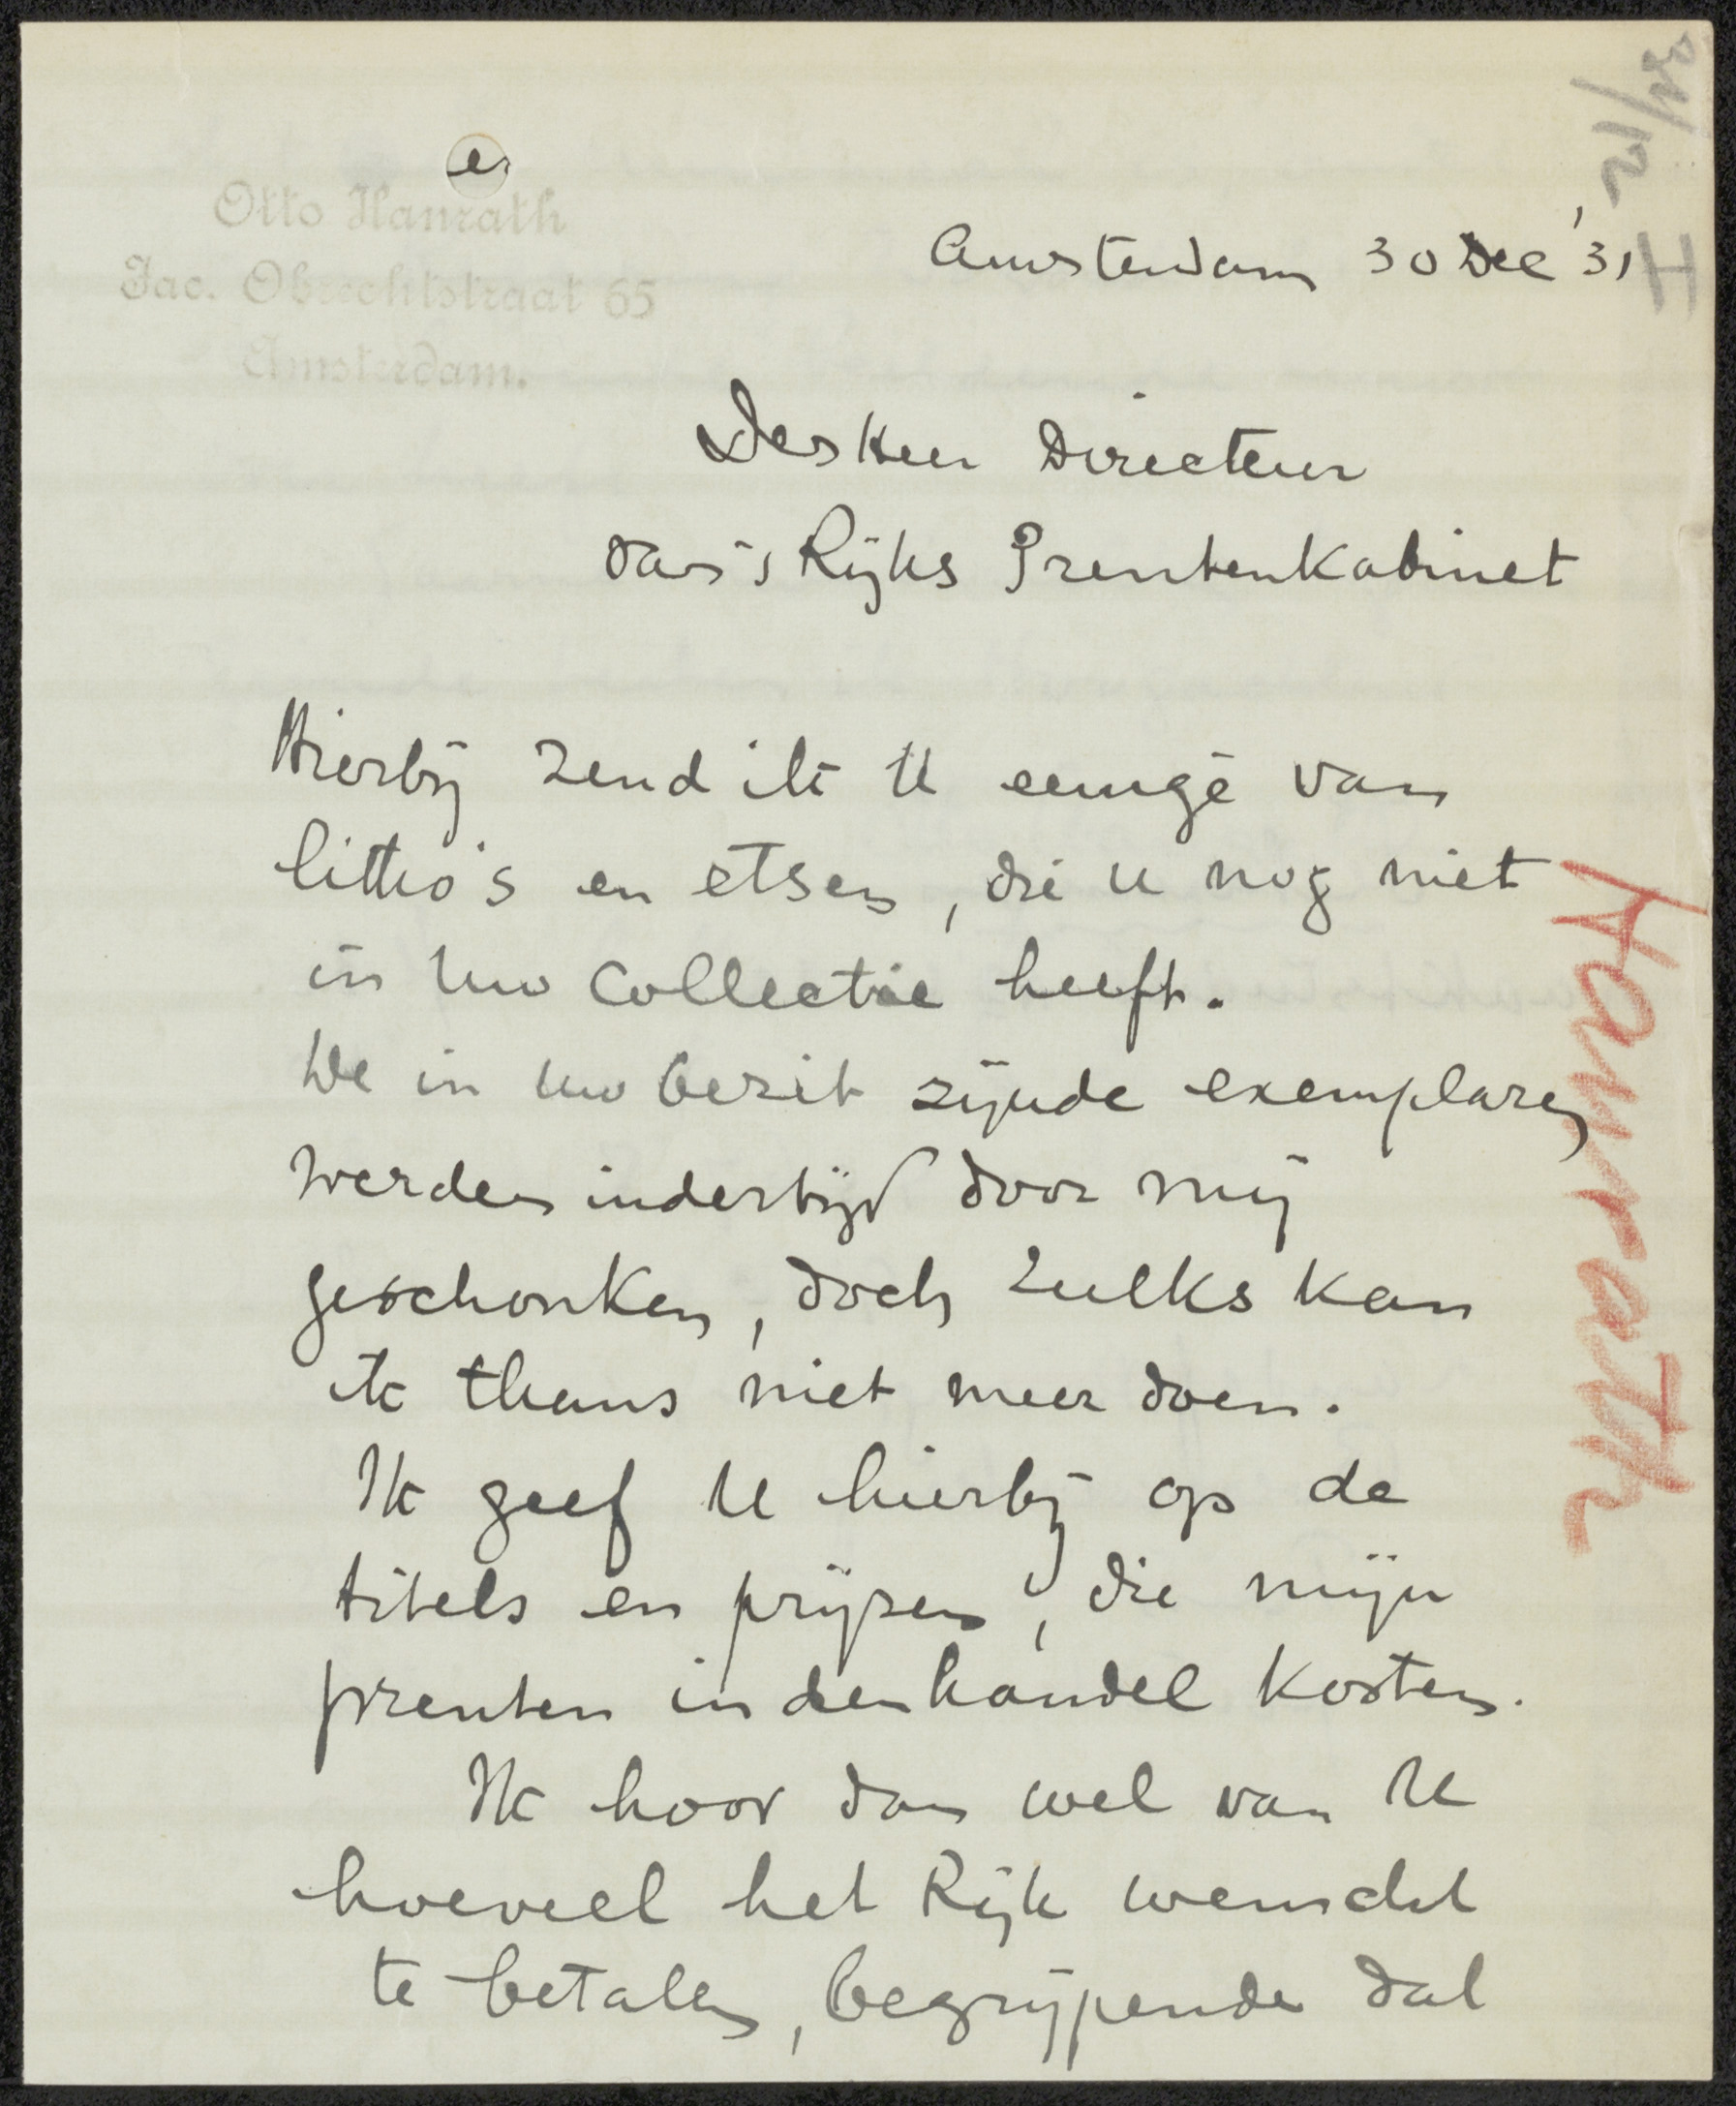 e
Otto Hanrath
Jac. Obrechtstraat 65
Amsterdam.
Amsterdam 30 Dec '31
H
Den Heer Directeur
van 's Rijks Prentenkabinet
Hierbij zend ik U eenige van
littho's en etsen, die u nog niet
in Uw Collectie heeft.
De in Uw bezit zijnde exemplaren
werden indertijd door mij
geschonken, doch zulks kan
ik thans niet meer doen.
Ik geef U hierbij op de
titels en prijzen, die mijn
prenten in den handel kosten.
Ik hoor dan wel van U
hoeveel het Rijk wenscht
te betalen, begrijpende dat
Hanrath